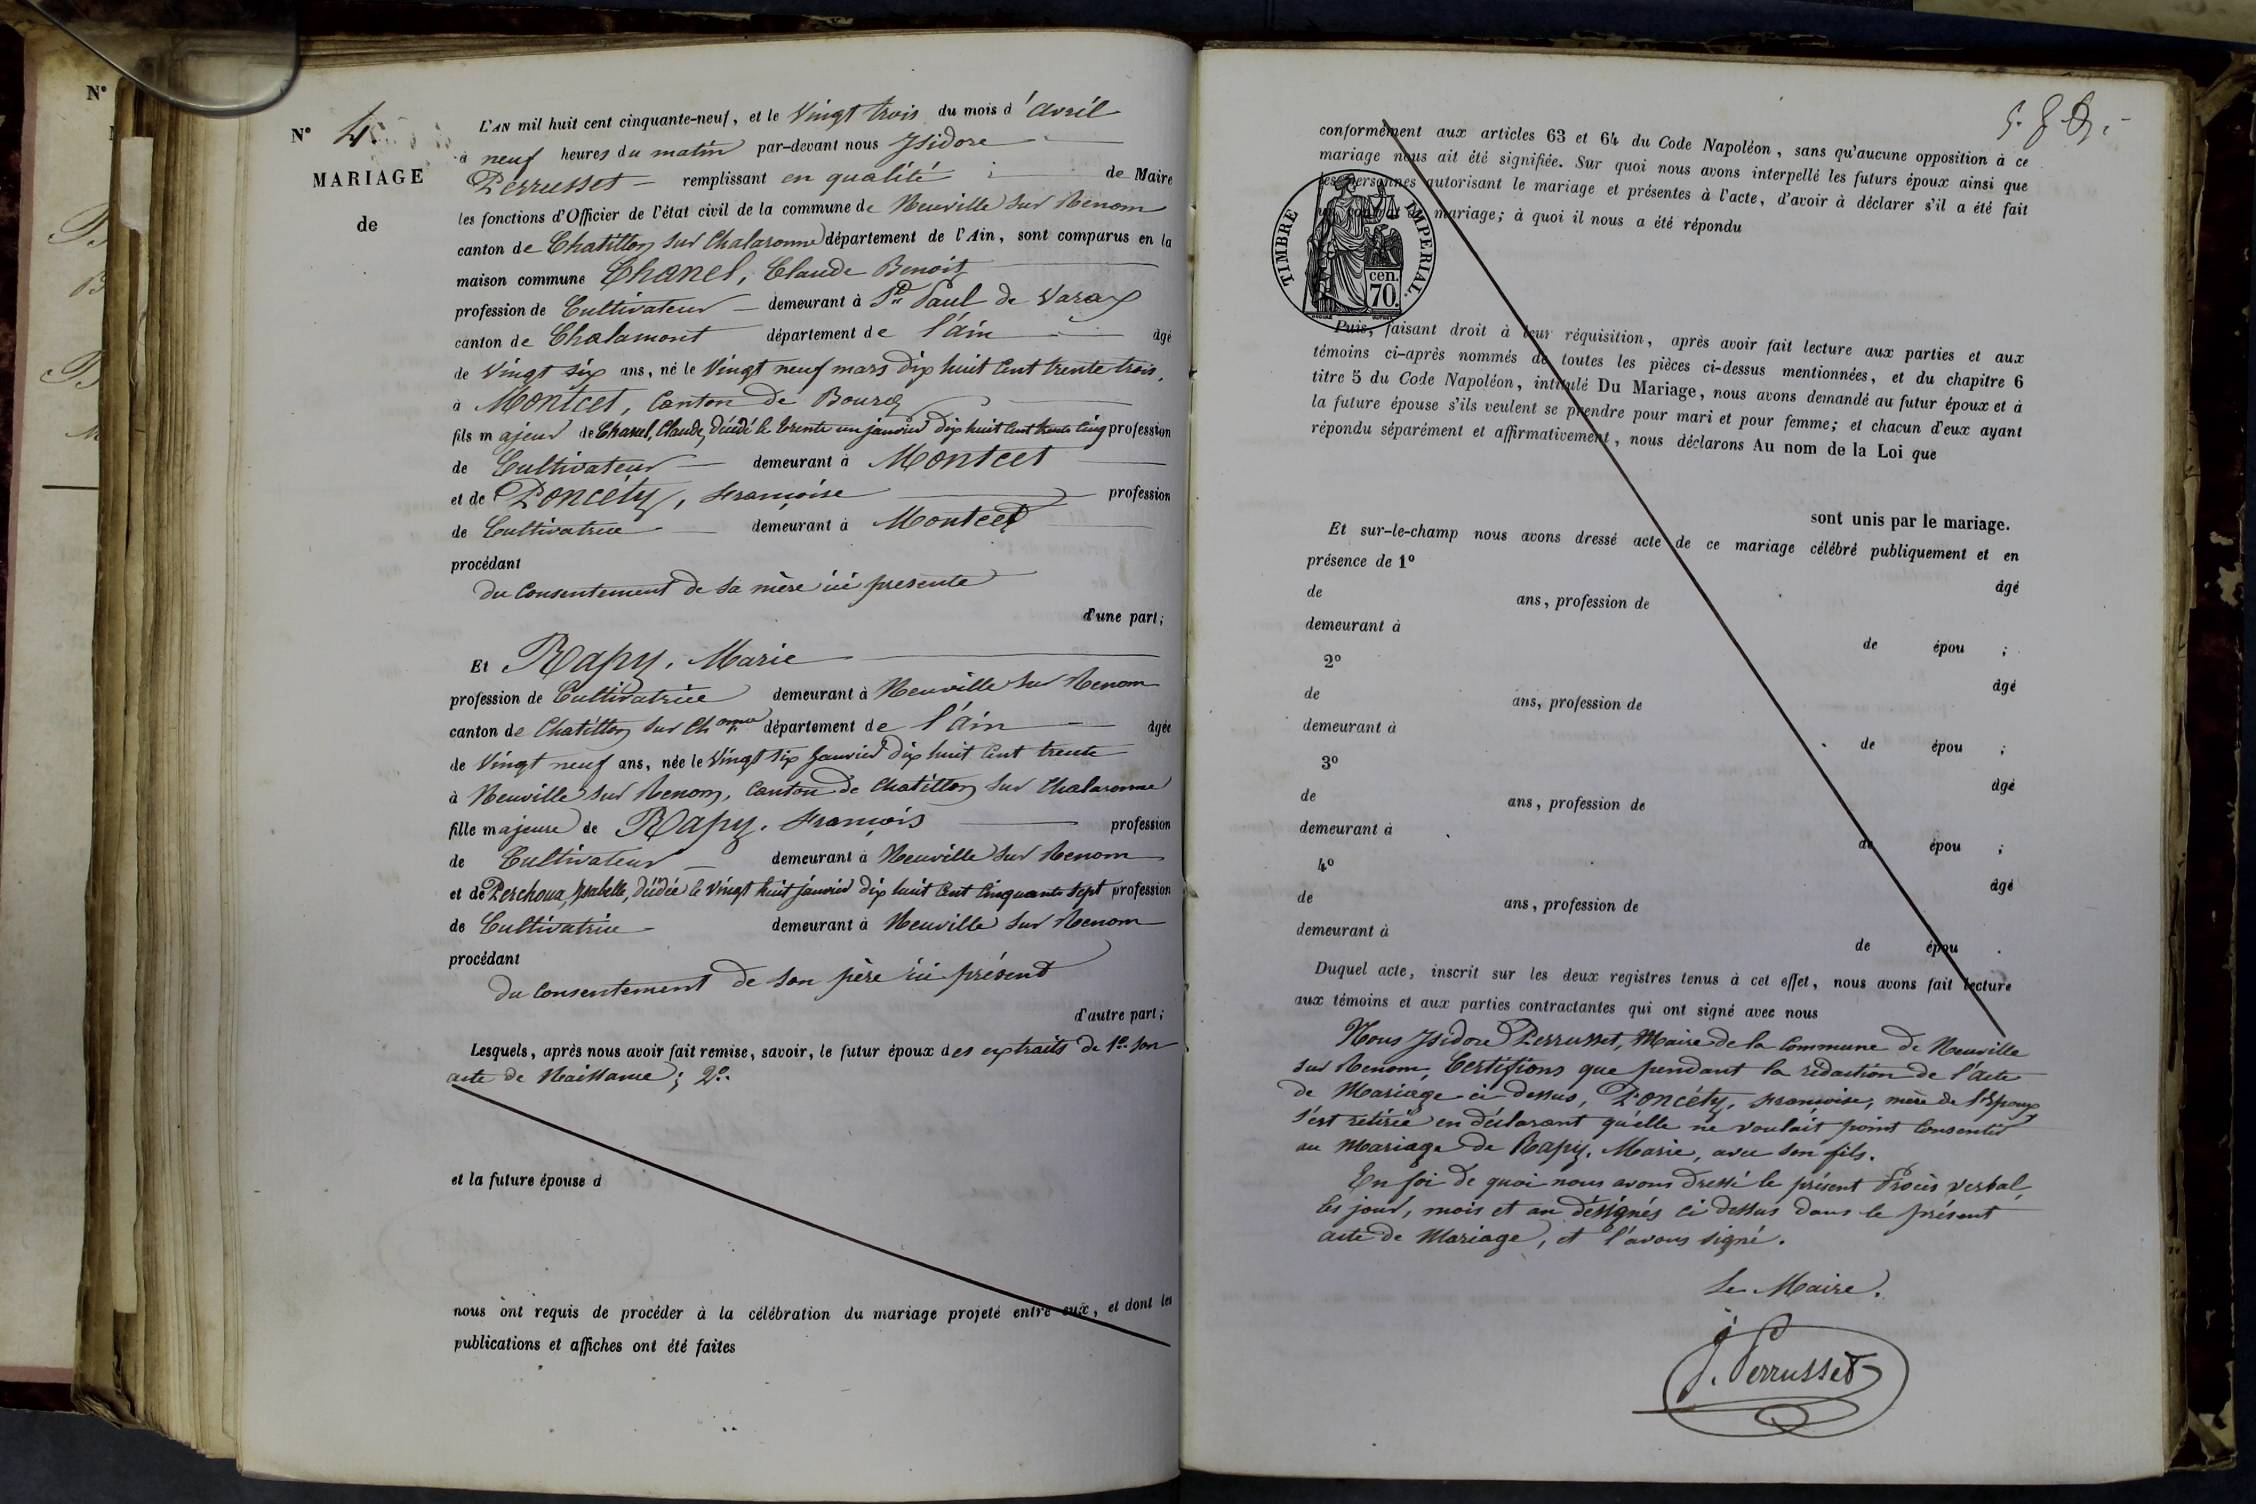 N°
N° 4
MARIAGE
de
L'AN mil huit cent cinquante-neuf, et le Vingt trois du mois d'avril
à neuf heures du matin par-devant nous Isidore
Perrusset remplissant en qualité de Maire
les fonctions d'Officier de l'état civil de la commune de Neuville sur Renom
canton de Chatillon sur Chalaronne département de l'Ain, sont comparus en la
maison commune Chanel, Claude Benoit
profession de Cultivateur demeurant à St Paul de Varax
canton de Chalamont département de l'ain âgé
de Vingt six ans, né le Vingt neuf mars dix huit Cent trente trois,
à Montcet, Canton de Bourg
fils majeur de Chanel, Claude, décédé le trente un janvier dix huit Cent trente Cinq profession
de Cultivateur demeurant à Montcet
et de Poncéty, Françoise profession
de Cultivatrice demeurant à Montcet
procédant
du Consentement de sa mère ici presente
d'une part;
Et Rapy, Marie
profession de Cultivatrice demeurant à Neuville sur Renom
canton de Chatillon sur Ch.onne département de l'ain âgée
de Vingt neuf ans, née le Vingt six Janvier dix huit Cent trente
à Neuville sur Renom, Canton de Chatillon sur Chalaronne
fille majeure de Rapy, François profession
de Cultivateur demeurant à Neuville sur Renom
et de Perchoux, Isabelle, décédée le Vingt huit janvier dix huit Cent Cinquante Sept profession
de Cultivatrice demeurant à Neuville sur Renom
procédant
du Consentement de son père ici présent
d'autre part;
Lesquels, après nous avoir fait remise, savoir, le futur époux des extraits de 1° Son
acte de Naissance; 2°.
et la future épouse d
nous ont requis de procéder à la célébration du mariage projeté entre eux, et dont les
publications et affiches ont été faites
conformément aux articles 63 et 64 du Code Napoléon, sans qu'aucune opposition à ce
mariage nous ait été signifiée. Sur quoi nous avons interpellé les futurs époux ainsi que
les personnes autorisant le mariage et présentes à l'acte, d'avoir à déclarer s'il a été fait
un contrat de mariage; à quoi il nous a été répondu
TIMBRE IMPERIAL.
70 cen.
Puis, faisant droit à leur réquisition, après avoir fait lecture aux parties et aux
témoins ci-après nommés de toutes les pièces ci-dessus mentionnées, et du chapitre 6
titre 5 du Code Napoléon, intitulé Du Mariage, nous avons demandé au futur époux et à
la future épouse s'ils veulent se prendre pour mari et pour femme; et chacun d'eux ayant
répondu séparément et affirmativement, nous déclarons Au nom de la Loi que
sont unis par le mariage.
Et sur-le-champ nous avons dressé acte de ce mariage célébré publiquement et en
présence de 1°
âgé
de ans, profession de
demeurant à
de épou ;
2°
âgé
de ans, profession de
demeurant à
de épou ;
3°
âgé
de ans, profession de
demeurant à
de épou ;
4°
âgé
de ans, profession de
demeurant à
de épou .
Duquel acte, inscrit sur les deux registres tenus à cet effet, nous avons fait lecture
aux témoins et aux parties contractantes qui ont signé avec nous
Nous Isidore Perrusset, Maire de la Commune de Neuville
sur Renom, Certifions que pendant la rédaction de l'acte
de Mariage ci dessus, Poncéty, Françoise, mère de l'Epoux
s'est retirée en déclarant qu'elle ne voulait point Consentir
au Mariage de Rapy, Marie, avec son fils.
En foi de quoi nous avons dressé le présent Procès Verbal,
les jour, mois et an désignés ci dessus dans le présent
acte de Mariage, et l'avons signé.
Le Maire.
J. Perrusset